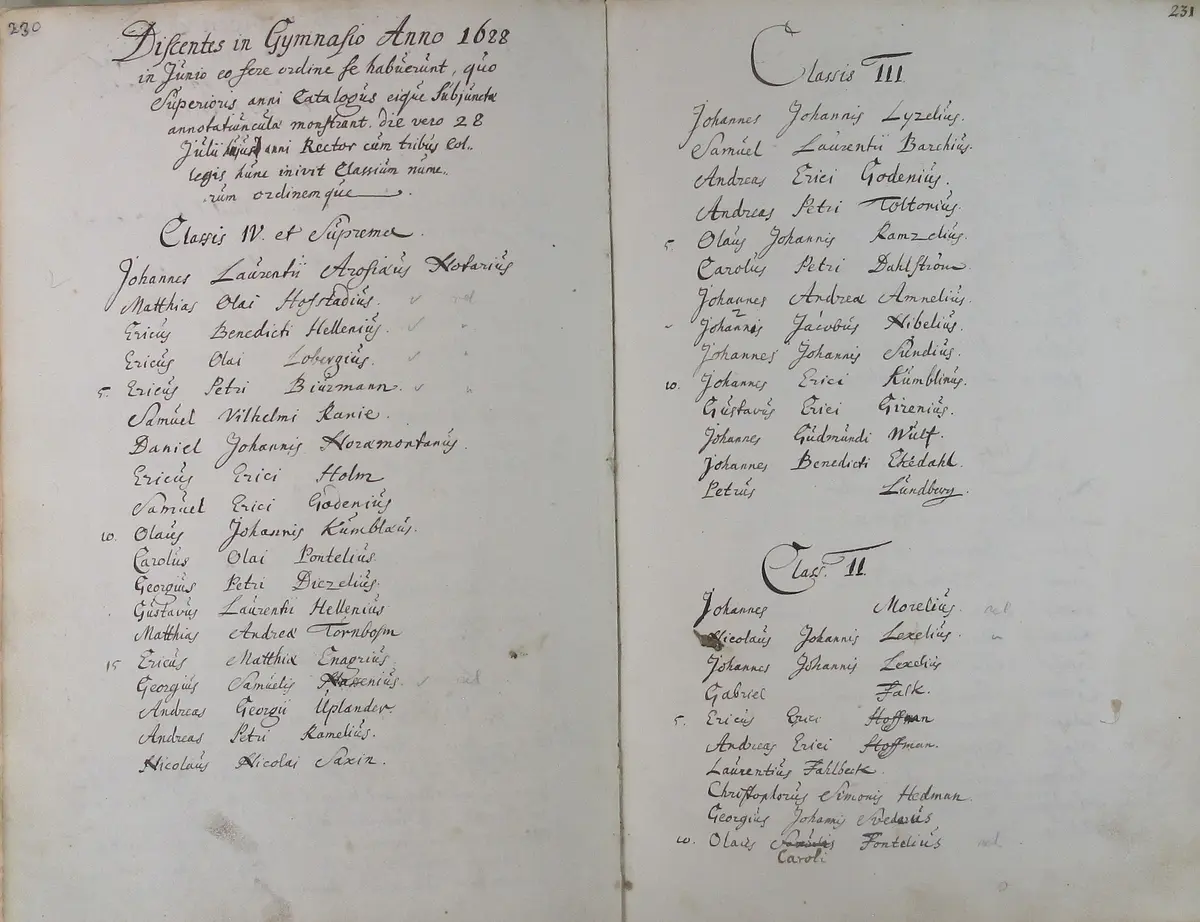 230
Discentes in Gymnasio Anno 1688
in Junio eo fere ordine se habuerunt, quo
Superioris anni Catalogus eique Subjuncta
annotatiuncula monstrant. die vero 28
Julii hujus anni Rector cum tribus Col-
legis hunc inivit Classium nume-
rum ordinemque
Classis IV. et Suprema.
Johannes Laurentii Arosiaus Notarius
Matthias Olai Hofstadius.
Ericus Benedicti Hellenius.
Ericus Olai Lobergius.
5. Ericus Petri Biurmann.
Samuel Vilhelmi Ranie.
Daniel Johannis Noræmontanus.
Ericus Erici Holm
Samuel Erici Godenius
10. Olaus Johannis Kumblæus.
Carolus Olai Pontelius
Georgius Petri Diczelius.
Gustavus Laurentii Hellenius
Matthias Andreæ Törnbom
15 Ericus Matthiæ Enagrius
Georgius Samuelis
Andreas Georgii Uplander.
Andreas Petri Ramelius.
Nicolaus Nicolai Saxin.
231
Classis III
Johannes Johannis Lyzelius.
Samuel Laurentii Barchius.
Andreas Erici Godenius.
Andreas Petri Toltorius.
5. Olaus Johannis Ramzelius.
Carolus Petri Dahlström
Johannes Andreæ Amnelius.
Johannis Jacobus Nibelius.
Johannes Johannis Sundius.
10. Johannes Erici Kumblinus.
Gustavus Erici Girenius.
Johannes Gudmundi Wulf.
Johannes Benedicti Ekedahl.
Petrus Lundberg.
Class. II.
Johannes Morelius.
Nicolaus Johannis Lexelius.
Johannes Johannis Lexelius
Gabriel Falk.
5. Ericus Erici Hoffman
Andreas Erici Hoffman.
Laurentius Fahlbeck.
Christophorus Simonis Hedman
Georgius Johannis Svedarus
10. Olaus Fontelius
Caroli